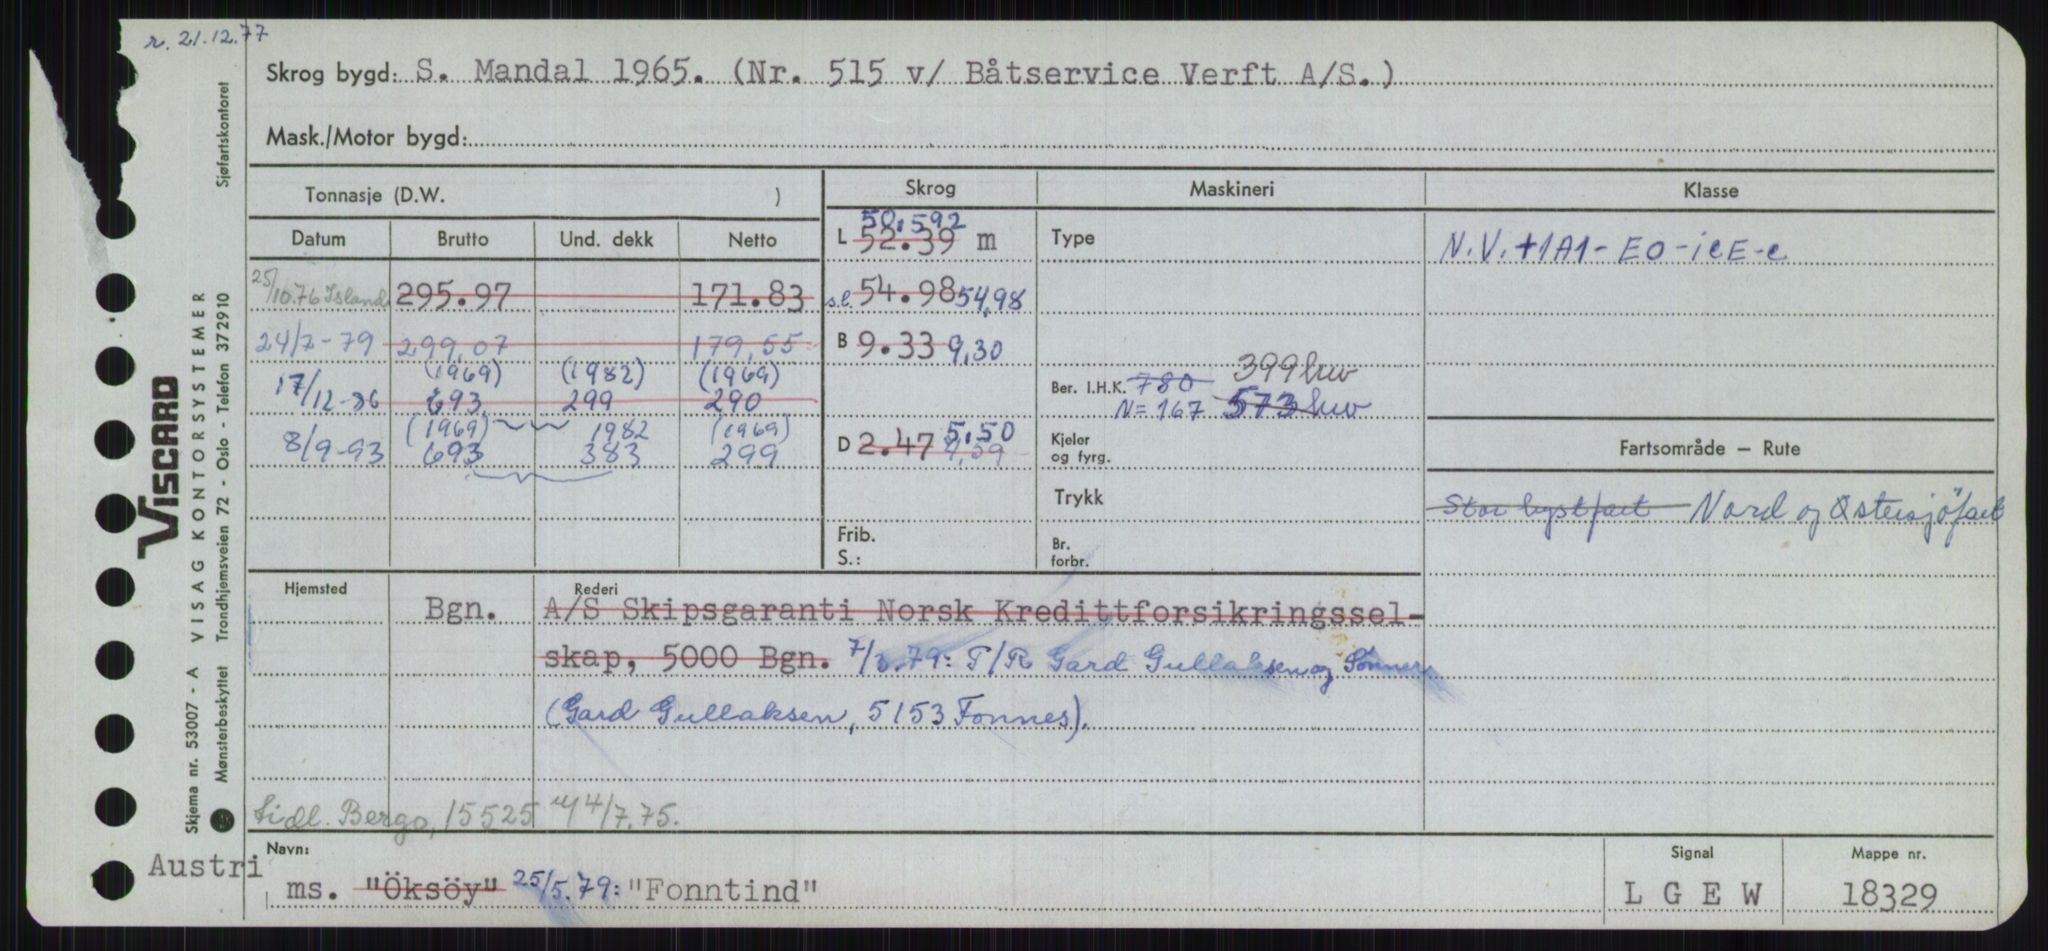 r. 21.12.77
Skrog bygd: S. Mandal 1965. (Nr. 515 v/ Båtservice Verft A/S.)
Mask./Motor bygd:
Tonnasje (D.W. )
Skrog
Maskineri
Klasse
Datum Brutto Und. dekk Netto
L 52.39 m 50.592
Type
N.V. +1A1-EO-icE-c
25/10.76 Island 295.97 171.83
s.l. 54.98 54,98
24/7-79 299,07 179,55
B 9.33 9,30
(1969) (1982) (1969)
17/12-86 693 299 290
399 hw
Ber. I.H.K. 780
N=167 573 hw
(1969) 1982 (1969)
8/9-93 693 383 299
D 2.47 5,50
Kjeler
og fyrg.
Fartsområde – Rute
Trykk
Stor kystfart Nord og Östersjöfart
Frib.
S.:
Br.
forbr.
Hjemsted
Rederi
Bgn. A/S Skipsgaranti Norsk Kredittforsikringssel-
skap, 5000 Bgn. 79: P/R Gard Gullaksen og Sönner
(Gard Gullaksen, 5153 Fonnes).
Bergo, 15525 4/7.75.
Navn:
Signal
Mappe nr.
Austri
ms. "Öksöy" 25/5.79: "Fonntind"
L G E W
18329
VISCARD
Skjema nr. 53007 - A VISAG KONTORSYSTEMER
Mønsterbeskyttet Trondhjemsveien 72 - Oslo - Telefon 372910 Sjøfartskontoret